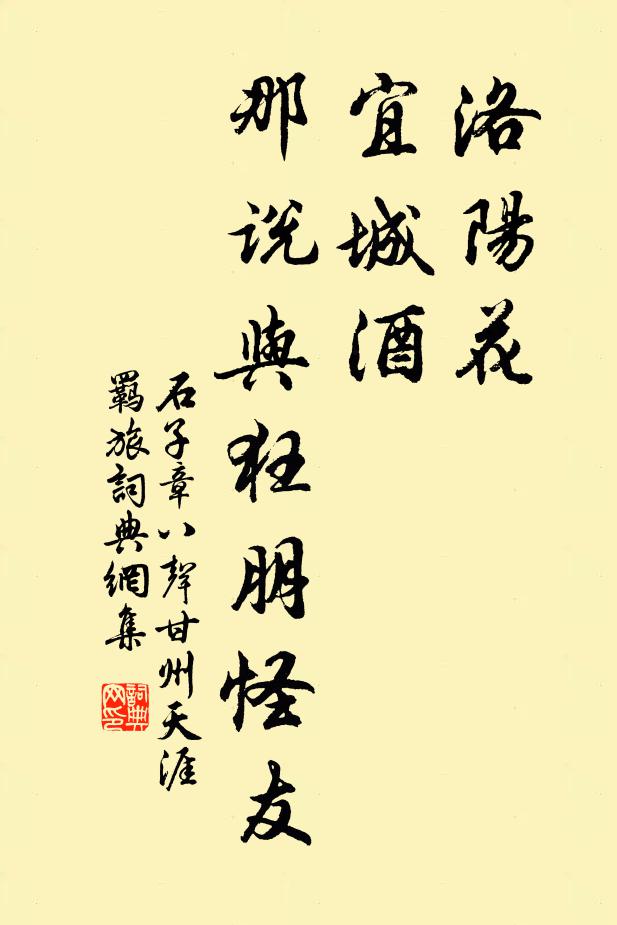 洛陽花
宜城酒
那说與狂朋怪友
石子章八聲甘州天涯
羁旅詞典網集
詞典网印